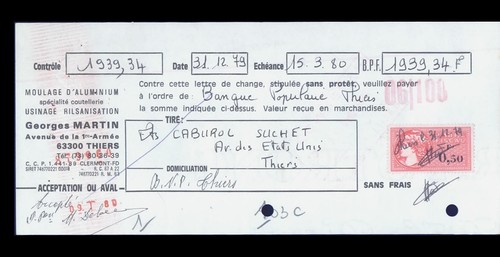 Contrôle 1939,34 Date 31.12.79 Echéance 15.3.80 B.P.F. 1939,34 F
MOULAGE D'ALUMINIUM
spécialité coutellerie
USINAGE HILSANISATION
Georges MARTIN
Avenue de la 1re-Armée
63300 THIERS
ACCEPTATION OU AVAL
Contre cette lettre de change, stipulée sans protêt, veuillez payer
à l'ordre de : Banque Populaire Thiers
la somme indiquée ci-dessus. Valeur reçue en marchandises.
TIRÉ:
Ets CABUROL SUCHET
Av. des Etats Unis
Thiers
DOMICILIATION
B.N.P. Thiers
SANS FRAIS
0,50